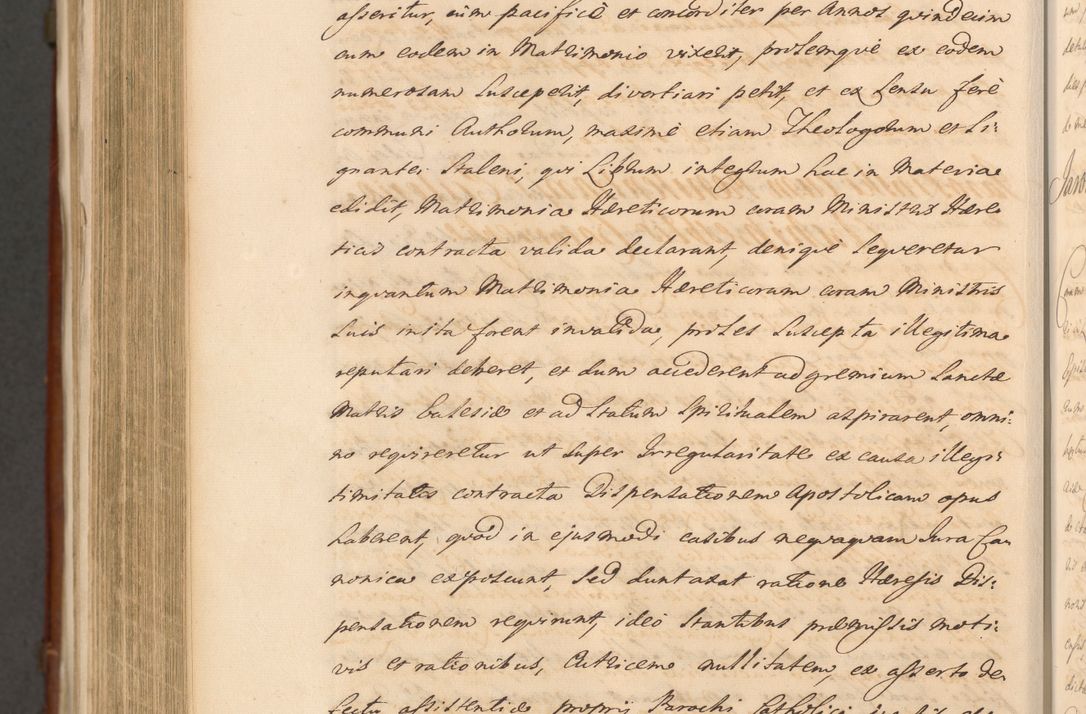 asseritur, cum pacificè et concorditer per Annos quindecim
cum eodem in Matrimonio vixerit, prolemqve ex eodem
numerosam Susceperit, divortiari petit, et ex Sensu ferè
communi Authorum, maximè etiam Theologorum et Si-
gnanter Staleni, qvi Librum integrum hac in Materia
edidit, Matrimonia Hæreticorum coram Ministris Hære
ticis contracta valida declarant, deniqvè Seqveretur
inqvantum Matrimonia Hæreticorum coram Ministris
Suis inita forent invalida, proles Suscepta illegitima
reputari deberet, et dum accederent ad gremium Sanctæ
Matris Ecclesiæ et ad Statum Spiritualem aspirarent, omni-
no reqvireretur ut Super Irregularitate ex causa illegi-
timitatis contracta Dispensationem Apostolicam opus
haberent, qvod in ejusmodi casibus neqvaqvam Jura Ca
nonica exposcunt, Sed duntaxat ratione Hæresis Dis-
pensationem reqvirunt, ideo Stantibus præmissis moti-
vis et rationibus, Actricem nullitatem, ex asserto de
fectu assistentiæ proprii Parochi Catholici